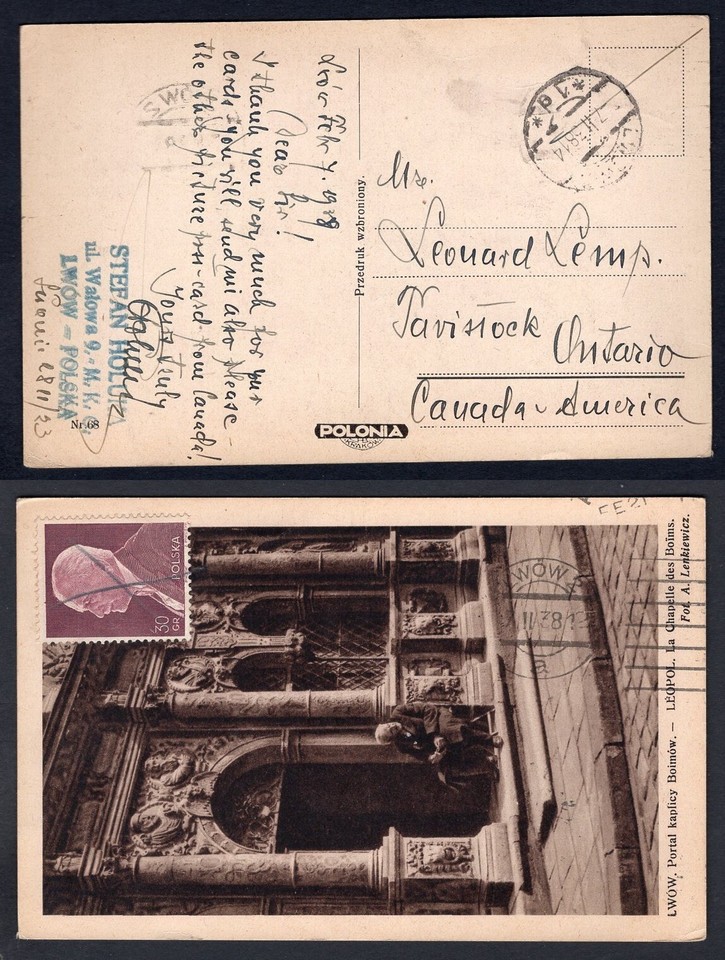 Lwów Febr 7. 1938
Dear Sir!
I thank you very much for your
cards you will send mi also please
the other picture pos-card from Canada!
Yours truly
STEFAN HOLU
ul. Wałowa 9. M. K.
LWÓW - POLSKA
Nr. 68
Przedruk wzbroniony.
POLONIA
KRAKÓW
Mr.
Leonard Lemp.
Tavistock Ontario
Canada - America
7.II.38.14
POLSKA
30 GR
LWÓW
II 38
a
LWÓW. Portal kaplicy Boimów. — LÉOPOL. La Chapelle des Boïms.
Fot. A. Lenkiewicz.